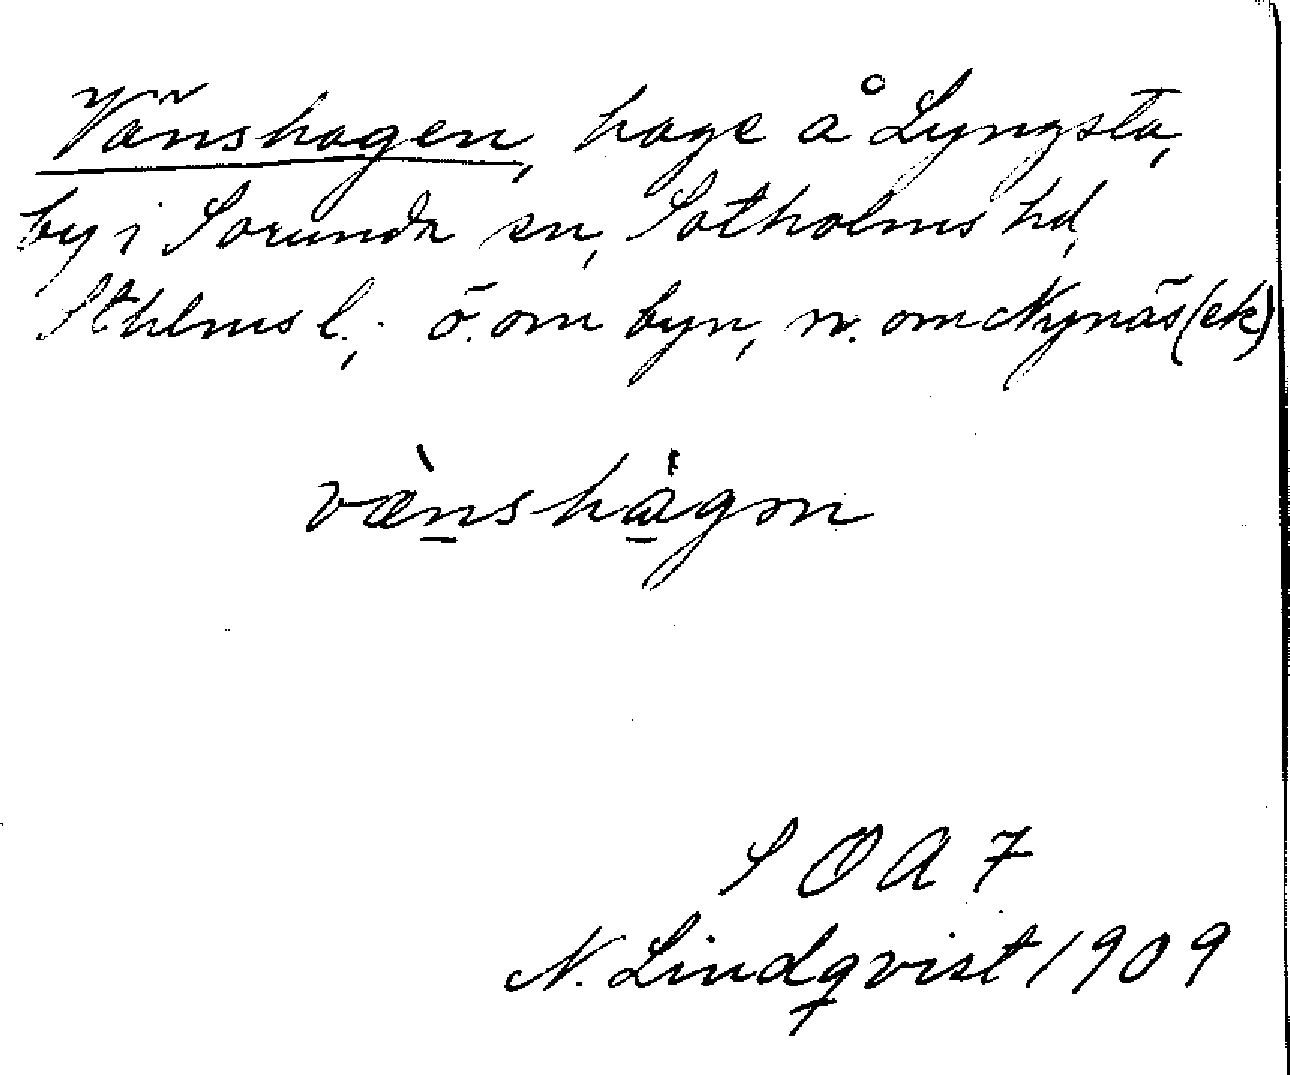 Vänshagen, hage å Lyngsta,
by i Sorunda sn, Sotholms hd,
Sthlms l.; ö. om byn, n. om Nynäs (ek)
væ̀nshágon
S O A 7
N. Lindqvist 1909